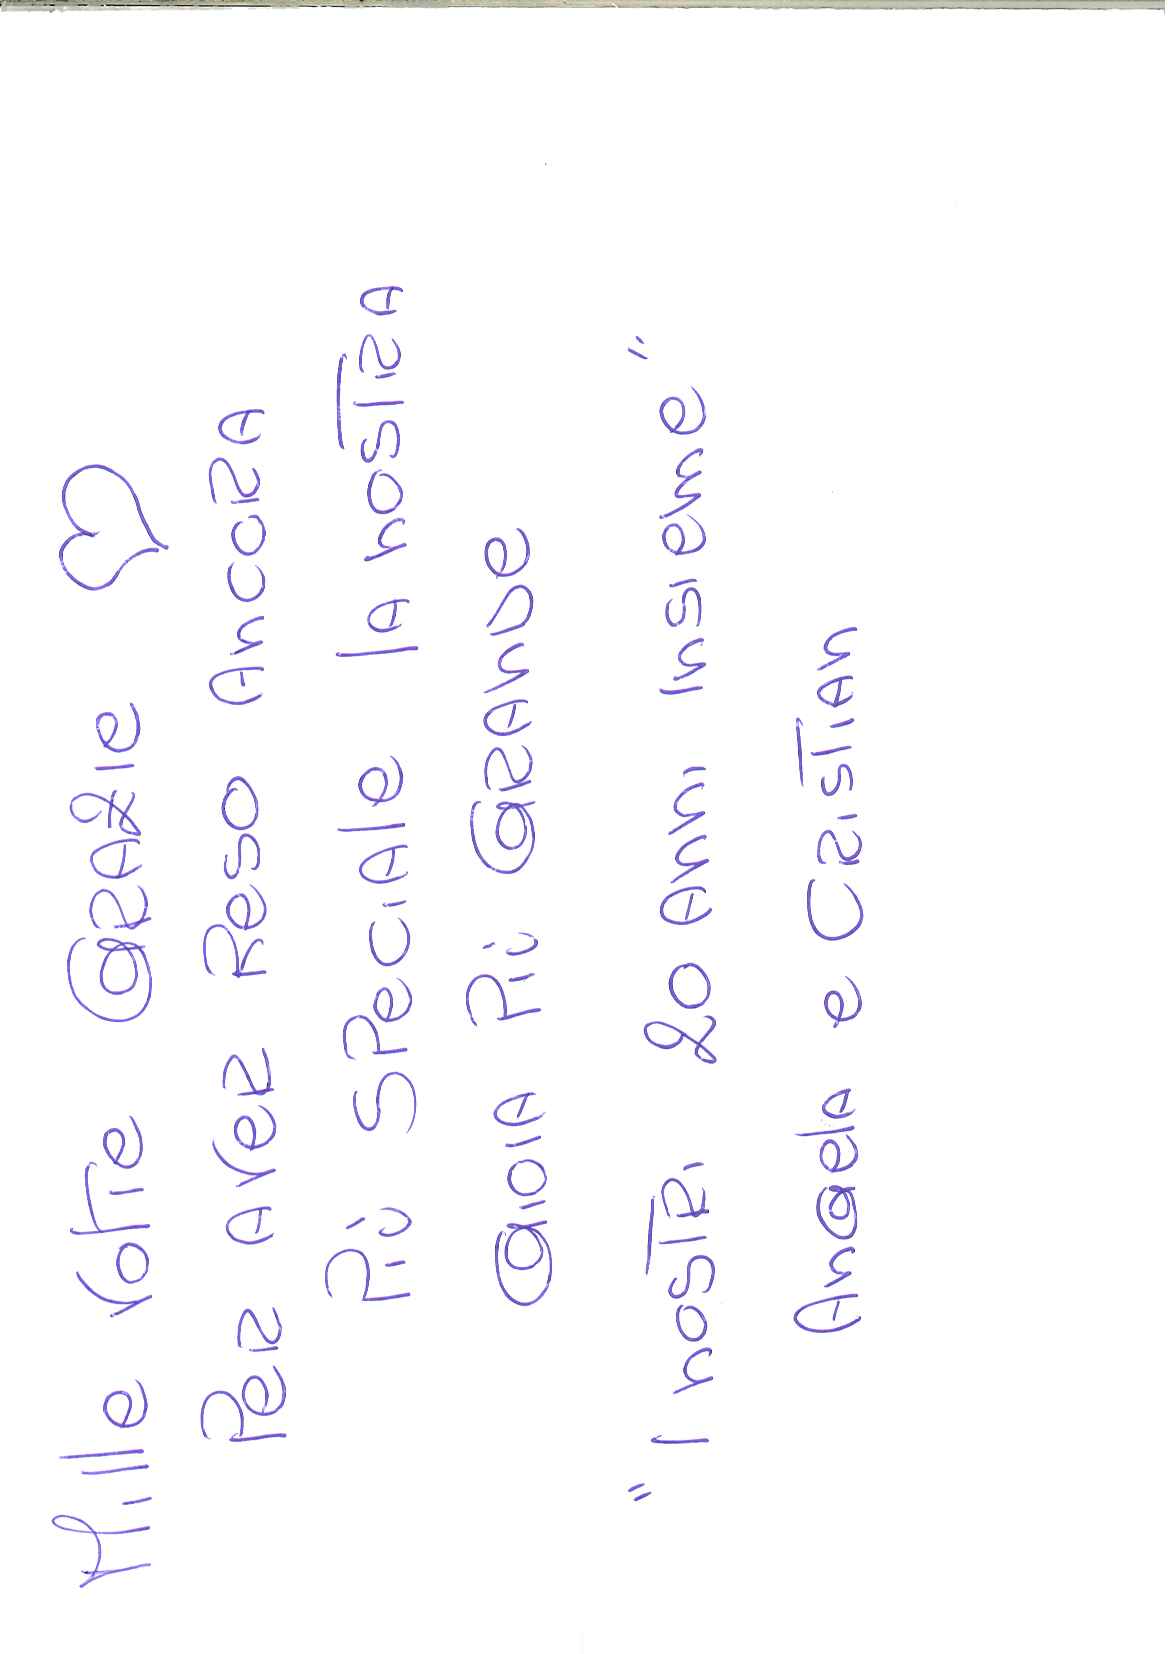 Mille volte Grazie ♡
Per Aver Reso Ancora
Più Speciale la nostra
Gioia Più Grande
"I nostri 20 Anni Insieme"
Angela e Cristian